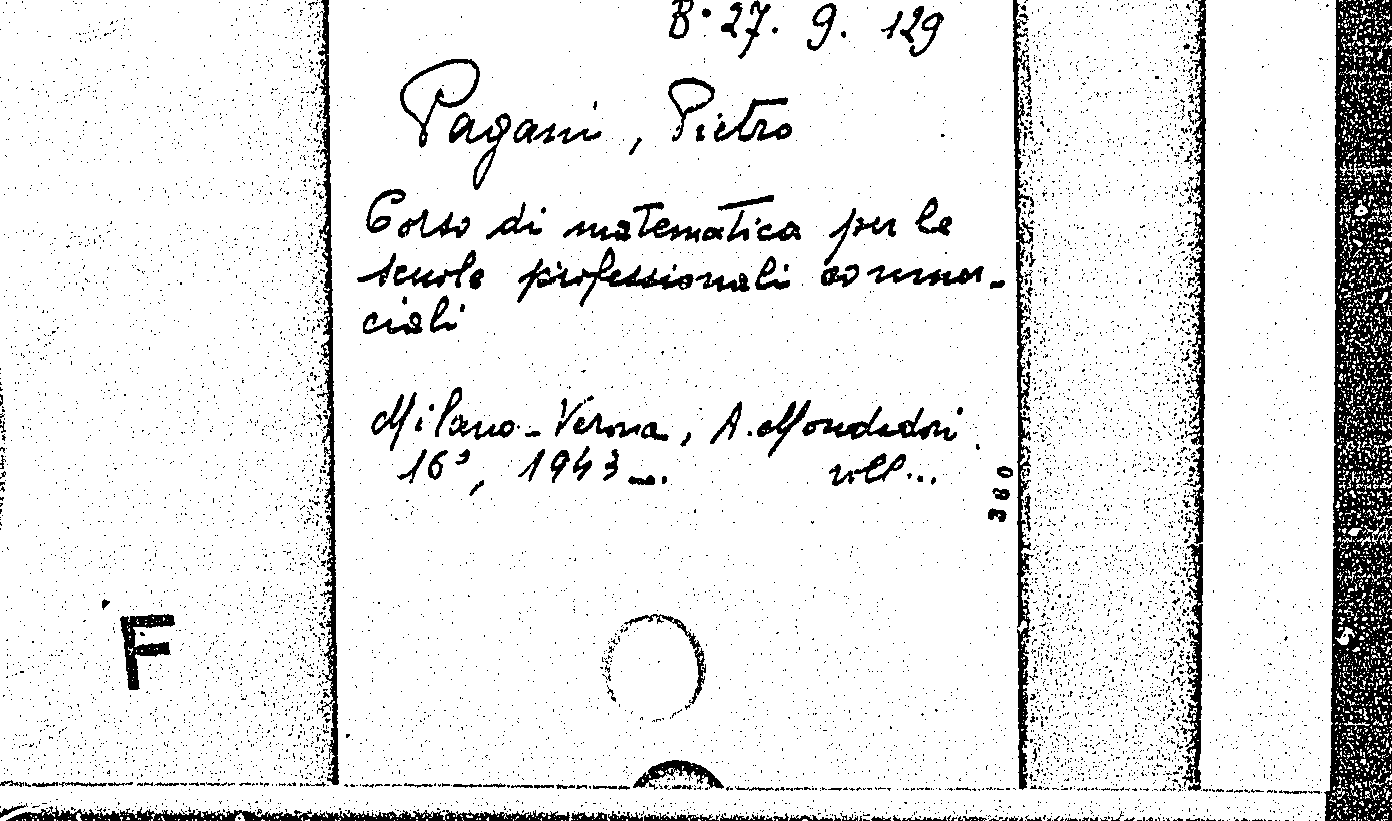 B. 27. 9. 129
Pagani, Pietro
Corso di matematica per le
scuole professionali commer-
ciali
Milano-Verona, A. Mondadori
16°, 1943... voll...
380
F